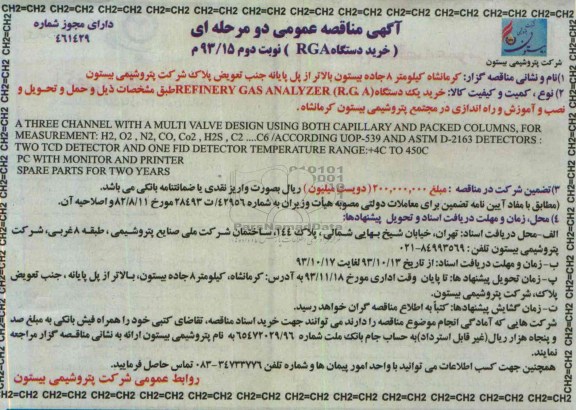 آگهی مناقصه عمومی دو مرحله ای
( خرید دستگاه RGA ) نوبت دوم ۹۳/۱۵ م
دارای مجوز شماره
۴۶۱۴۲۹
شرکت پتروشیمی بیستون
۱)نام و نشانی مناقصه گزار: کرمانشاه کیلومتر ۸ جاده بیستون بالاتر از پل پایانه جنب تعویض پلاک شرکت پتروشیمی بیستون
۲) نوع ، کمیت و کیفیت کالا: خرید یک دستگاه REFINERY GAS ANALYZER (R.G. A) طبق مشخصات ذیل و حمل و تحویل و
نصب و آموزش و راه اندازی در مجتمع پتروشیمی بیستون کرمانشاه.
A THREE CHANNEL WITH A MULTI VALVE DESIGN USING BOTH CAPILLARY AND PACKED COLUMNS, FOR
MEASUREMENT: H2, O2 , N2, CO, Co2 , H2S , C2 ....C6 /ACCORDING UOP-539 AND ASTM D-2163 DETECTORS :
TWO TCD DETECTOR AND ONE FID DETECTOR TEMPERATURE RANGE:+4C TO 450C
PC WITH MONITOR AND PRINTER
SPARE PARTS FOR TWO YEARS
۳) تضمین شرکت در مناقصه : مبلغ ۲۰۰,۰۰۰,۰۰۰ (دویست میلیون ) ریال بصورت واریز نقدی یا ضمانتنامه بانکی می باشد.
(مطابق با مفاد آیین نامه تضمین برای معاملات دولتی مصوبه هیأت وزیران به شماره ۴۲۹۵۶/ت ۲۸۴۹۳ مورخ ۸۲/۸/۱۱ و اصلاحیه آن.
۴) محل، زمان و مهلت دریافت اسناد و تحویل پیشنهادها:
الف - محل دریافت اسناد: تهران، خیابان شیخ بهایی شمالی، پلاک ۱۴۴، ساختمان شرکت ملی صنایع پتروشیمی ، طبقه ۸ غربی، شرکت
پتروشیمی بیستون تلفن : ۸۴۹۹۳۵۶۹-۰۲۱
ب - زمان و مهلت دریافت اسناد: از تاریخ ۹۳/۱۰/۱۳ لغایت ۹۳/۱۰/۱۷
پ - زمان تحویل پیشنهاد ها: تا پایان وقت اداری مورخ ۹۳/۱۱/۱۸ به آدرس: کرمانشاه، کیلومتر ۸ جاده بیستون، بالاتر از پل پایانه ، جنب تعویض
پلاک، شرکت پتروشیمی بیستون.
ت- زمان گشایش پیشنهادها: کتباً به اطلاع مناقصه گران خواهد رسید.
شرکت هایی که آمادگی انجام موضوع مناقصه را دارند می توانند جهت خرید اسناد مناقصه، تقاضای کتبی خود را همراه فیش بانکی به مبلغ صد
و پنجاه هزار ریال (غیر قابل استرداد) به حساب جام بانک ملت شماره ۶۵۴۷۲۰۲۹/۹۶ به نام پتروشیمی بیستون ارائه به نشانی مناقصه گزار مراجعه
نمایند.
همچنین جهت کسب اطلاعات می توانید با واحد امور پیمان ها و شماره تلفن ۳۴۷۳۳۷۷۶-۰۸۳ تماس حاصل فرمایید.
روابط عمومی شرکت پتروشیمی بیستون